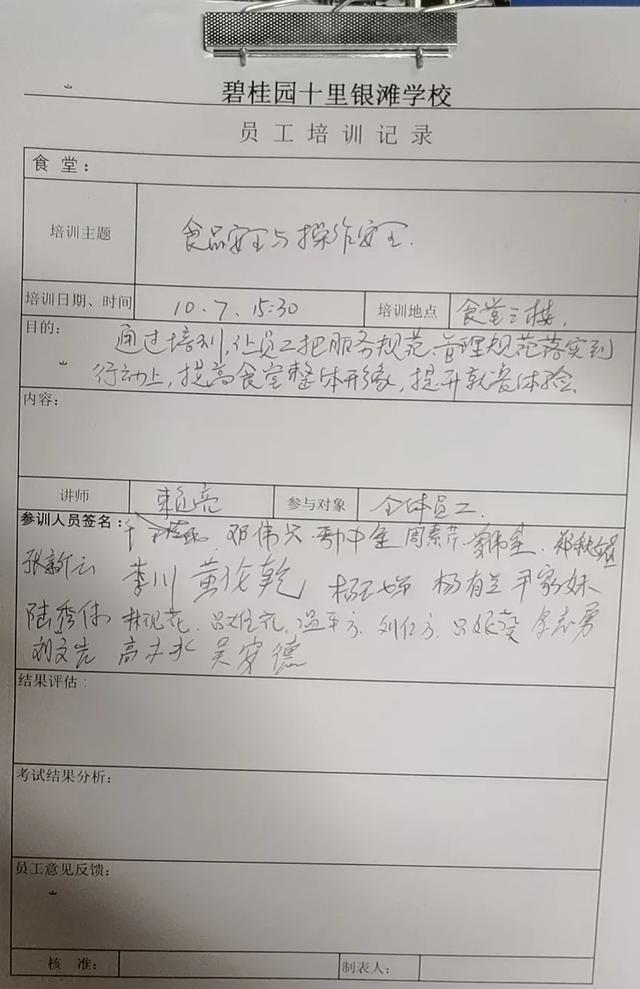 碧桂园十里银滩学校
员工培训记录
食堂：
培训主题 食品安全与操作安全.
培训日期、时间 10.7. 15:30 培训地点 食堂三楼.
目的： 通过培训,让员工把服务规范、管理规范落实到
行动上,提高食堂整体形象,提升就餐体验.
内容：
讲师 赖亮 参与对象 全体员工.
参训人员签名： 邓伟兴 周素芹
张新云 李川 黄伦乾 杨有兰 尹家妹
陆秀伟 林观花 温军方 刘仁方 李志勇
刘文宏 高木水 吴穿德
结果评估：
考试结果分析：
员工意见反馈：
核 准： 制表人：